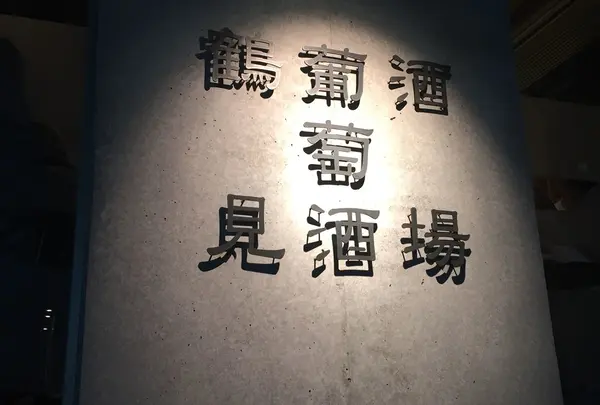 鶴見
葡萄酒
酒場